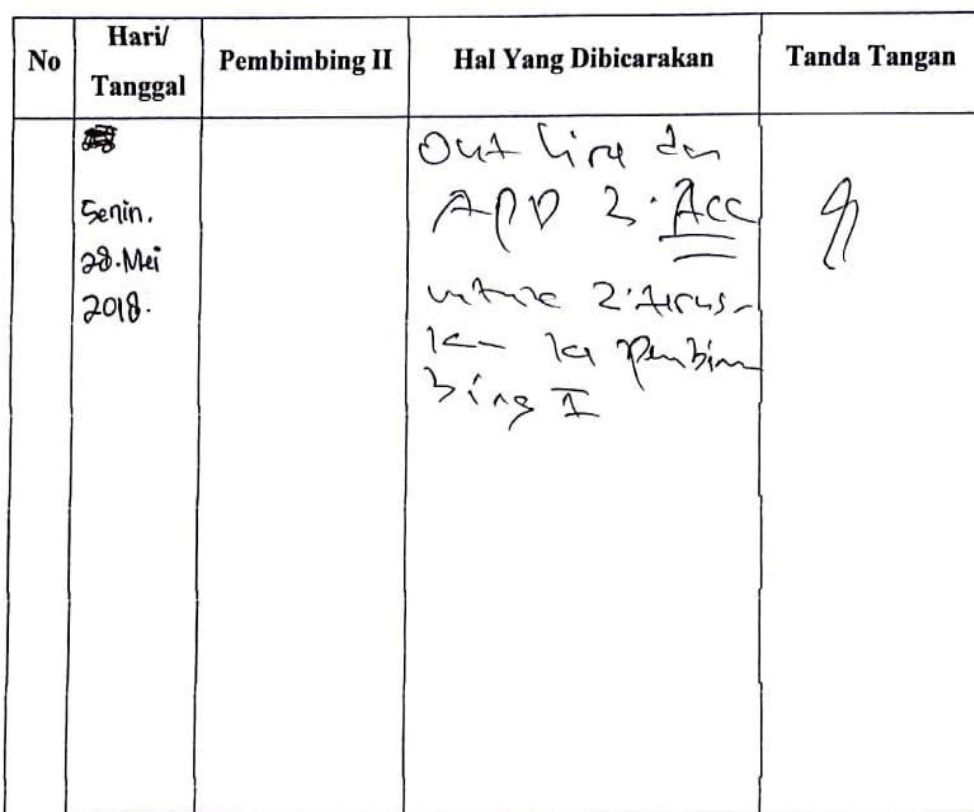 No Hari/ Tanggal Pembimbing II Hal Yang Dibicarakan Tanda Tangan
Senin.
28.Mei
2018.
Out line dan
APD di Acc
untuk diterus-
kan ke Pembim
bing I